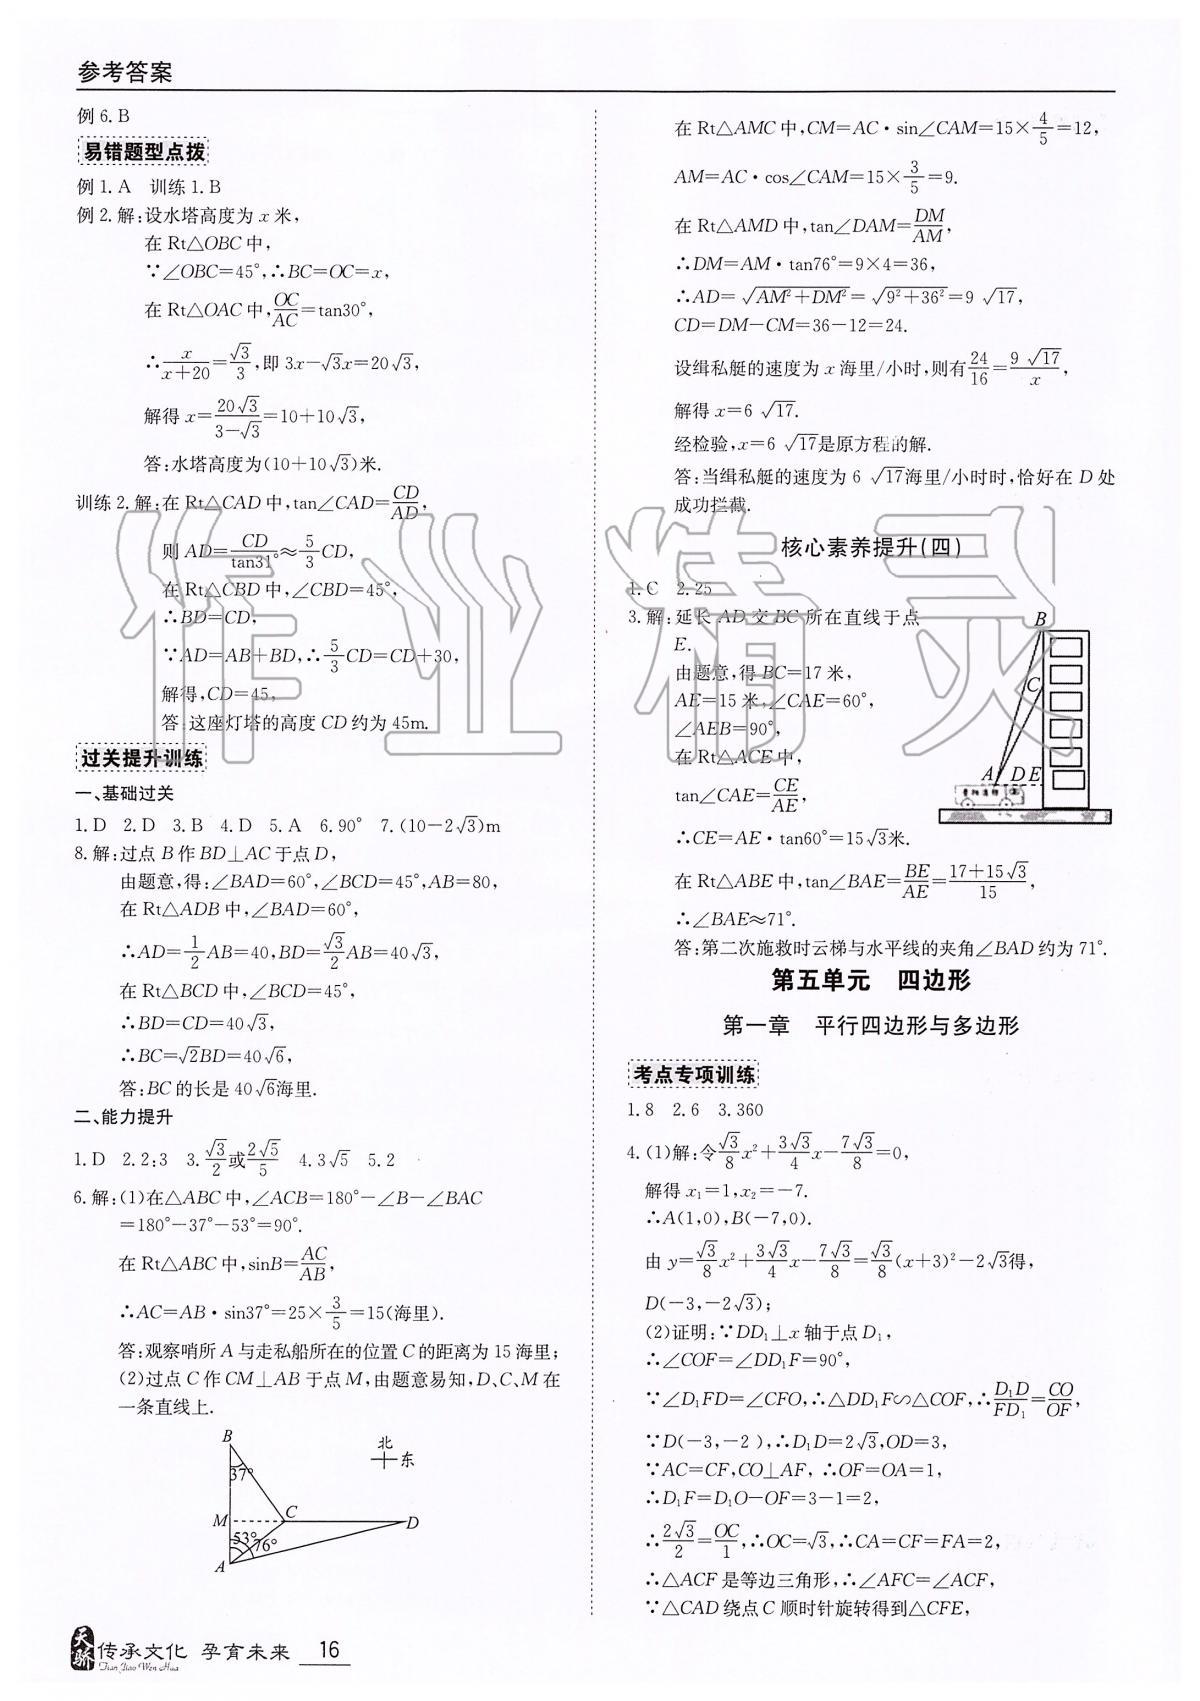 参考答案
例6.B
易错题型点拨
例1.A　训练1.B
例2.解:设水塔高度为x米,
在Rt△OBC中,
∵∠OBC=45°,∴BC=OC=x,
在Rt△OAC中,OC/AC=tan30°,
∴x/(x+20)=√3/3,即3x-√3x=20√3,
解得x=20√3/(3-√3)=10+10√3,
答:水塔高度为(10+10√3)米.
训练2.解:在Rt△CAD中,tan∠CAD=CD/AD,
则AD=CD/tan31°≈5/3CD,
在Rt△CBD中,∠CBD=45°,
∴BD=CD,
∵AD=AB+BD,∴5/3CD=CD+30,
解得,CD=45,
答:这座灯塔的高度CD约为45m.
过关提升训练
一、基础过关
1.D　2.D　3.B　4.D　5.A　6.90°　7.(10-2√3)m
8.解:过点B作BD⊥AC于点D,
由题意,得:∠BAD=60°,∠BCD=45°,AB=80,
在Rt△ADB中,∠BAD=60°,
∴AD=1/2AB=40,BD=√3/2AB=40√3,
在Rt△BCD中,∠BCD=45°,
∴BD=CD=40√3,
∴BC=√2BD=40√6,
答:BC的长是40√6海里.
二、能力提升
1.D　2.2:3　3.√3/2或2√5/5　4.3√5　5.2
6.解:(1)在△ABC中,∠ACB=180°-∠B-∠BAC
=180°-37°-53°=90°.
在Rt△ABC中,sinB=AC/AB,
∴AC=AB·sin37°=25×3/5=15(海里).
答:观察哨所A与走私船所在的位置C的距离为15海里;
(2)过点C作CM⊥AB于点M,由题意易知,D、C、M在
一条直线上.
B
北
东
37°
M
C
D
53°
76°
A
在Rt△AMC中,CM=AC·sin∠CAM=15×4/5=12,
AM=AC·cos∠CAM=15×3/5=9.
在Rt△AMD中,tan∠DAM=DM/AM,
∴DM=AM·tan76°=9×4=36,
∴AD=√(AM²+DM²)=√(9²+36²)=9√17,
CD=DM-CM=36-12=24.
设缉私艇的速度为x海里/小时,则有24/16=9√17/x,
解得x=6√17.
经检验,x=6√17是原方程的解.
答:当缉私艇的速度为6√17海里/小时时,恰好在D处
成功拦截.
核心素养提升(四)
1.C　2.25
3.解:延长AD交BC所在直线于点
E.
由题意,得BC=17米,
AE=15米,∠CAE=60°,
∠AEB=90°,
在Rt△ACE中,
tan∠CAE=CE/AE,
∴CE=AE·tan60°=15√3米.
在Rt△ABE中,tan∠BAE=BE/AE=(17+15√3)/15,
∴∠BAE≈71°.
答:第二次施救时云梯与水平线的夹角∠BAD约为71°.
B
C
A
D
E
第五单元　四边形
第一章　平行四边形与多边形
考点专项训练
1.8　2.6　3.360
4.(1)解:令√3/8x²+3√3/4x-7√3/8=0,
解得x₁=1,x₂=-7.
∴A(1,0),B(-7,0).
由y=√3/8x²+3√3/4x-7√3/8=√3/8(x+3)²-2√3得,
D(-3,-2√3);
(2)证明:∵DD₁⊥x轴于点D₁,
∴∠COF=∠DD₁F=90°,
∵∠D₁FD=∠CFO,∴△DD₁F∽△COF,∴D₁D/FD₁=CO/OF,
∵D(-3,-2 ),∴D₁D=2√3,OD=3,
∵AC=CF,CO⊥AF, ∴OF=OA=1,
∴D₁F=D₁O-OF=3-1=2,
∴2√3/2=OC/1,∴OC=√3,∴CA=CF=FA=2,
∴△ACF是等边三角形,∴∠AFC=∠ACF,
∵△CAD绕点C顺时针旋转得到△CFE,
作业精灵
天骄
传承文化　孕育未来
Tian Jiao Wen Hua
16